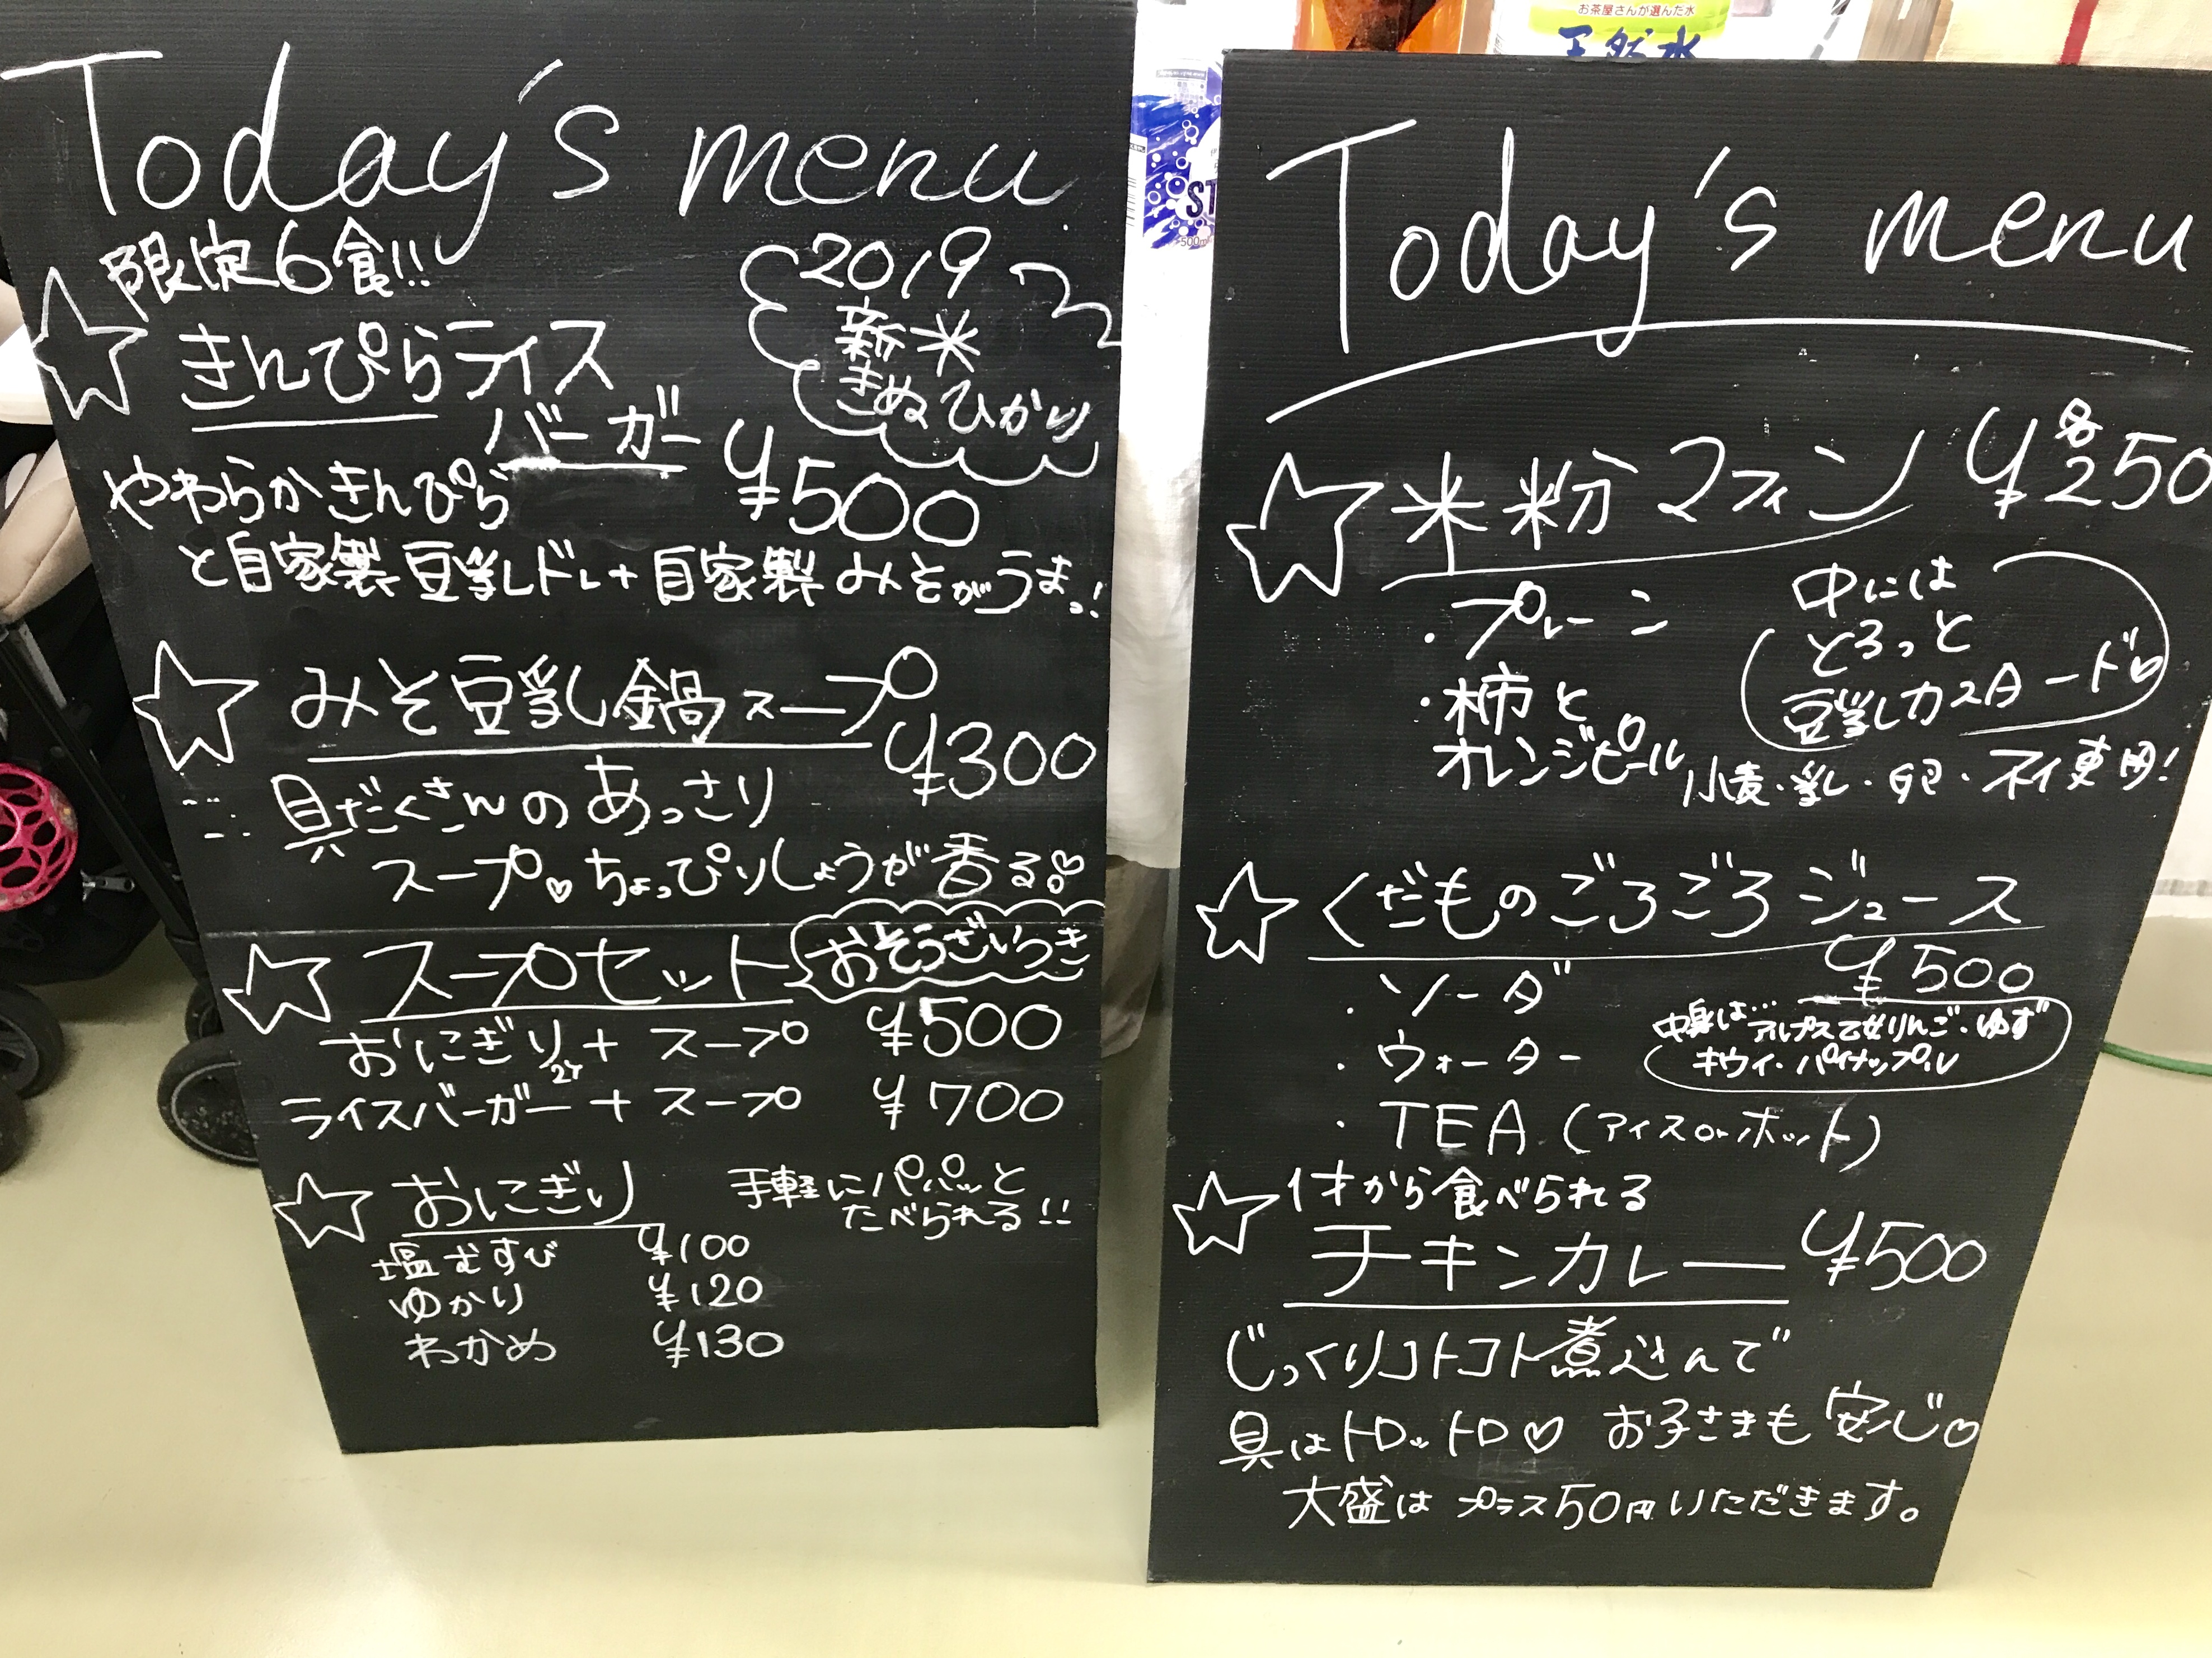 Today's menu
限定6食!!!
きんぴらライス
バーガー ¥500
2019
新米
きぬひかり
やわらかきんぴら
と自家製豆乳ドレ+自家製みそがうまっ!
みそ豆乳鍋スープ
¥300
具だくさんのあっさり
スープ♡ちょっぴりしょうが香る♡
スープセット おそうざいつき
おにぎり2ケ+スープ ¥500
ライスバーガー+スープ ¥700
おにぎり
手軽にパパッと
たべられる!!
塩むすび ¥100
ゆかり ¥120
わかめ ¥130
お茶屋さんが選んだ水
天然水
ST
500ml
Today's menu
米粉マフィン 各¥250
・プレーン
・柿と
オレンジピール
中には
とろっと
豆乳カスタード♡
小麦・乳・卵・不使用!
くだものごろごろジュース
¥500
・ソーダ
・ウォーター
・TEA(アイスorホット)
中身は…アルプス乙女りんご・ゆず
キウイ・パイナップル
1才から食べられる
チキンカレー ¥500
じっくりコトコト煮込んで
具はトロットロ♡ お子さまも安心♡
大盛はプラス50円いただきます。